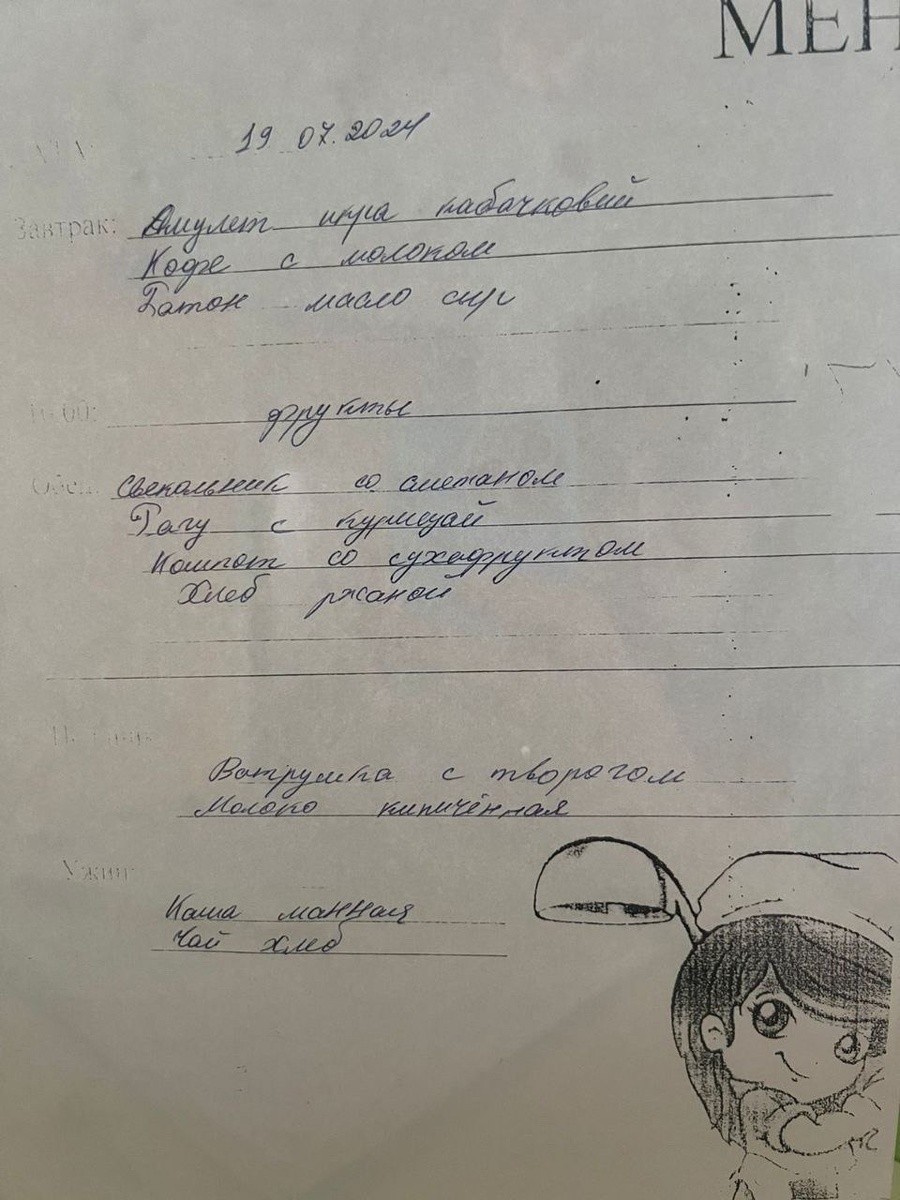 МЕН
ДАТА: 19 07.2024
Завтрак: Амулет икра кабачковий
Кофе с молоком
Батон масло сыр
10.00: фрукты
Обед: Свекольник со сметаном
Рагу с курицай
Компот со сухофруктом
Хлеб ржаной
Ватрушка с творогом
Молоко кипичённая
Ужин:
Каша манная
Чай хлеб